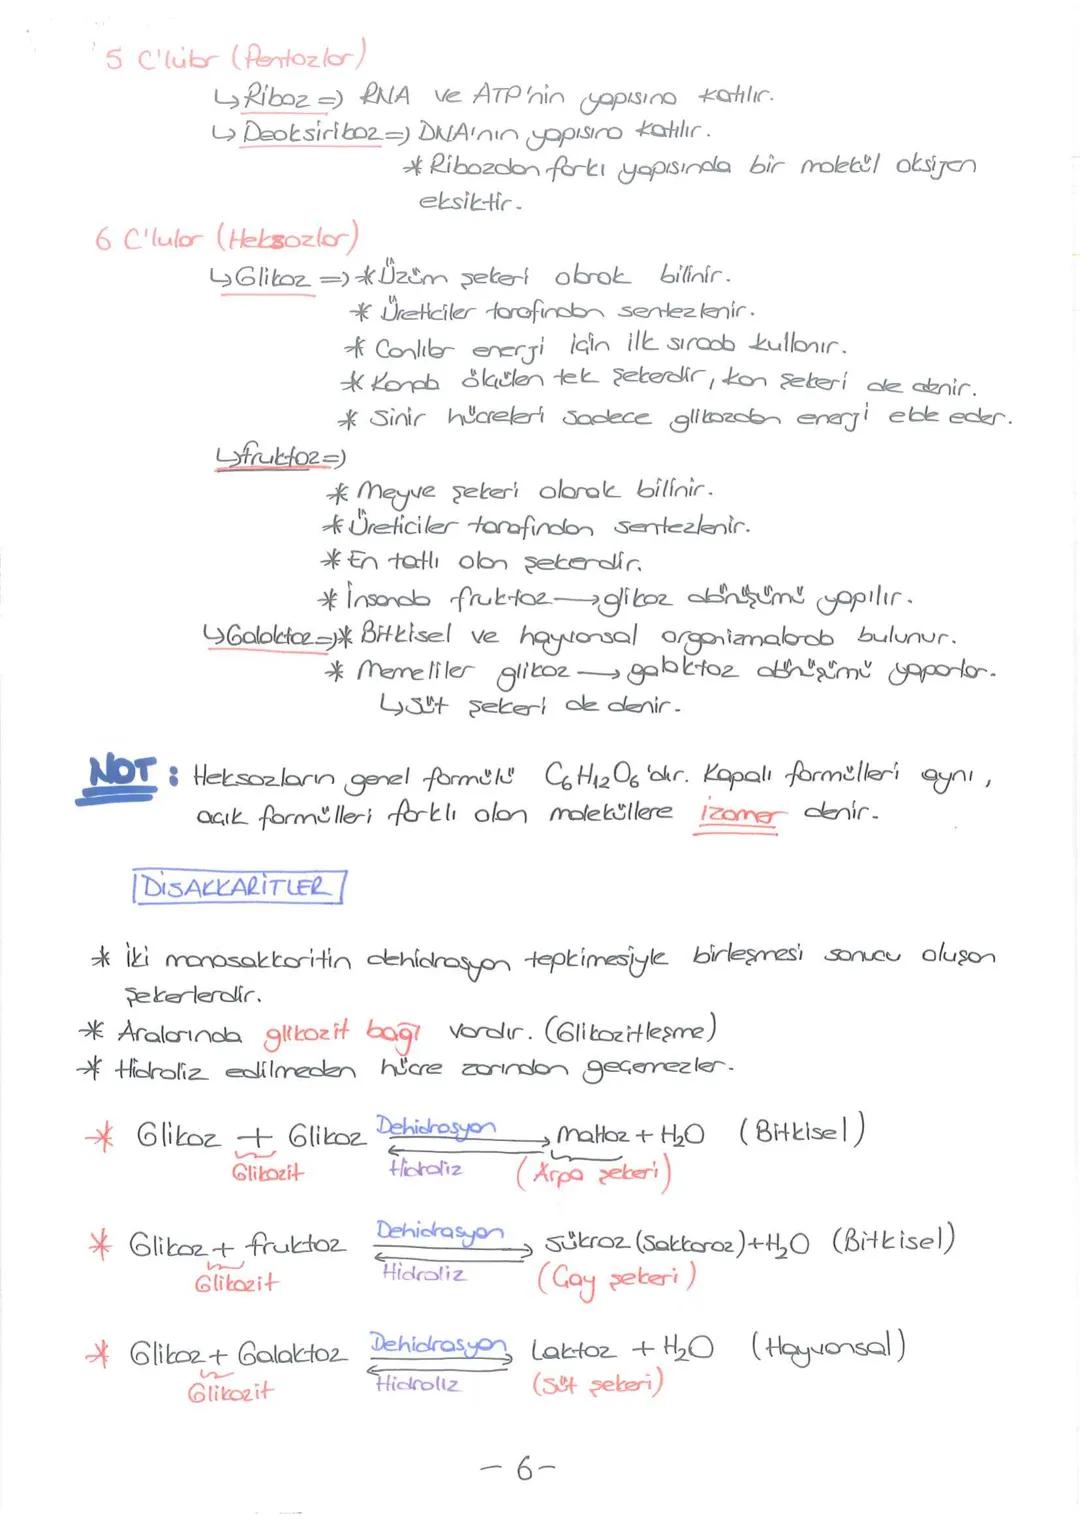 5 C'lüler (Pentozlar)
↳Riboz => RNA ve ATP'nin yapısına katılır.
↳Deoksiriboz=> DNA'nın yapısına katılır.
* Ribozdan farkı yapısında bir molekül oksijen
eksiktir.
6 C'lular (Heksozlar)
↳Glikoz => *Üzüm şekeri olarak bilinir.
* Üreticiler tarafından sentezlenir.
* Canlılar enerji için ilk sırada kullanır.
* Kanda ölçülen tek şekerdir, kan şekeri de denir.
* Sinir hücreleri sadece glikozdan enerji elde eder.
↳fruktoz=>
* Meyve şekeri olarak bilinir.
* Üreticiler tarafından sentezlenir.
* En tatlı olan şekerdir.
* İnsanda fruktoz→glikoz dönüşümü yapılır.
↳Galaktoz=>* Bitkisel ve hayvansal organizmalarda bulunur.
* Memeliler glikoz → galaktoz dönüşümü yaparlar.
↳Süt şekeri de denir.
NOT : Heksozların genel formülü C₆H₁₂O₆'dır. Kapalı formülleri aynı,
açık formülleri farklı olan moleküllere izomer denir.
DİSAKKARİTLER
* İki monosakkaritin dehidrasyon tepkimesiyle birleşmesi sonucu oluşan
şekerlerdir.
* Aralarında glikozit bağı vardır. (Glikozitleşme)
* Hidroliz edilmeden hücre zarından geçemezler.
* Glikoz + Glikoz Dehidrasyon Maltoz + H₂O (Bitkisel)
Glikozit Hidroliz (Arpa şekeri)
* Glikoz + fruktoz Dehidrasyon Sükroz (Sakkaroz)+H₂O (Bitkisel)
Glikozit Hidroliz (Çay şekeri)
* Glikoz + Galaktoz Dehidrasyon Laktoz + H₂O (Hayvansal)
Glikozit Hidroliz (Süt şekeri)
- 6 -